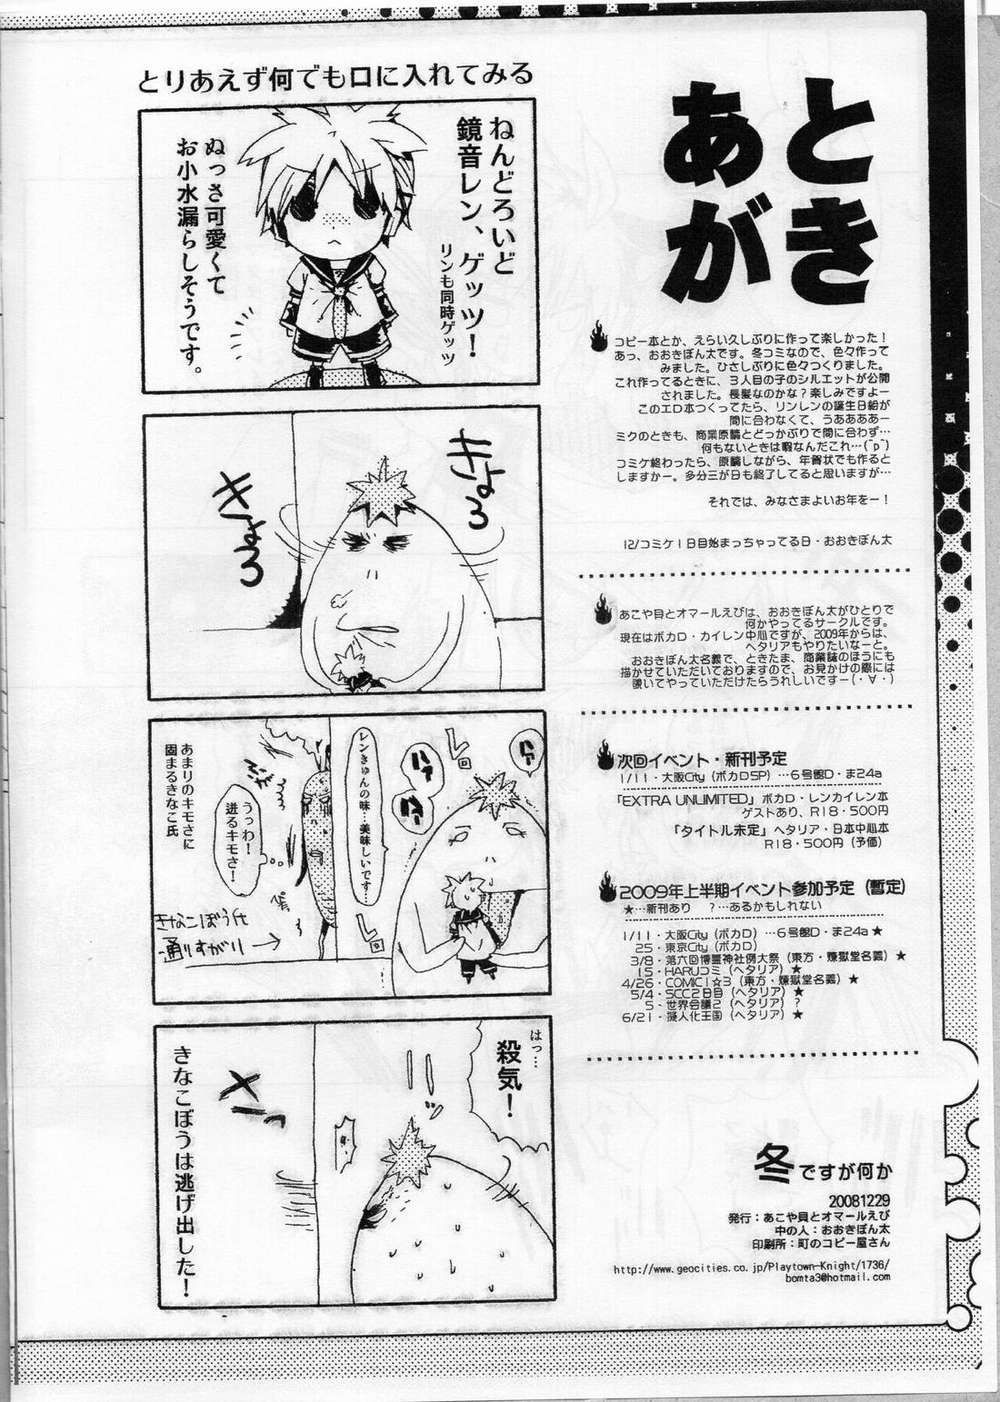 あとがき
コピー本とか、えらい久しぶりに作って楽しかった！
あっ、おおきぼん太です。冬コミなので、色々作って
みました。ひさしぶりに色々つくりました。
これ作ってるときに、３人目の子のシルエットが公開
されました。長髪なのかな？楽しみですよー
このエロ本つくってたら、リンレンの誕生日絵が
間に合わなくて、うああああー
ミクのときも、商業原稿とどっかぶりで間に合わず…
何もないときは暇なんだこれ…(´p`)
コミケ終わったら、原稿しながら、年賀状でも作ると
しますかー。多分三が日も終了してると思いますが…
それでは、みなさまよいお年をー！
12/コミケ１日目始まっちゃってる日・おおきぼん太
あこや貝とオマールえびは、おおきぼん太がひとりで
何かやってるサークルです。
現在はボカロ・カイレン中心ですが、2009年からは、
ヘタリアもやりたいなーと。
おおきぼん太名義で、ときたま、商業誌のほうにも
描かせていただいておりますので、お見かけの際には
覗いてやっていただけたらうれしいですー(・∀・)
次回イベント・新刊予定
1/11・大阪City（ボカロSP）…６号館D・ま24a
「EXTRA UNLIMITED」ボカロ・レンカイレン本
ゲストあり、R18・500円
「タイトル未定」ヘタリア・日本中心本
R18・500円（予価）
2009年上半期イベント参加予定（暫定）
★…新刊あり　？…あるかもしれない
1/11・大阪City（ボカロ）…６号館D・ま24a★
25・東京City（ボカロ）
3/8・第六回博麗神社例大祭（東方・煉獄堂名義）★
15・HARUコミ（ヘタリア）★
4/26・COMIC１☆３（東方・煉獄堂名義）★
5/4・SCC２日目（ヘタリア）★
5・世界会議２（ヘタリア）？
6/21・擬人化王国（ヘタリア）★
冬ですが何か
20081229
発行：あこや貝とオマールえび
中の人：おおきぼん太
印刷所：町のコピー屋さん
http://www.geocities.co.jp/Playtown-Knight/1736/
bomta3@hotmail.com
とりあえず何でも口に入れてみる
ねんどろいど
鏡音レン、ゲッツ！
リンも同時ゲッツ
ぬっさ可愛くて
お小水漏らしそうです。
きょろ
きょろ
ハァ
ハァ
ハァ
レロ
レンきゅんの味…美味しいです…
レロ
うっわ！
迸るキモさ！
あまりのキモさに
固まるきなこ氏
きなこぼう氏
通りすがり→
はっ…
殺気！
きなこぼうは逃げ出した！